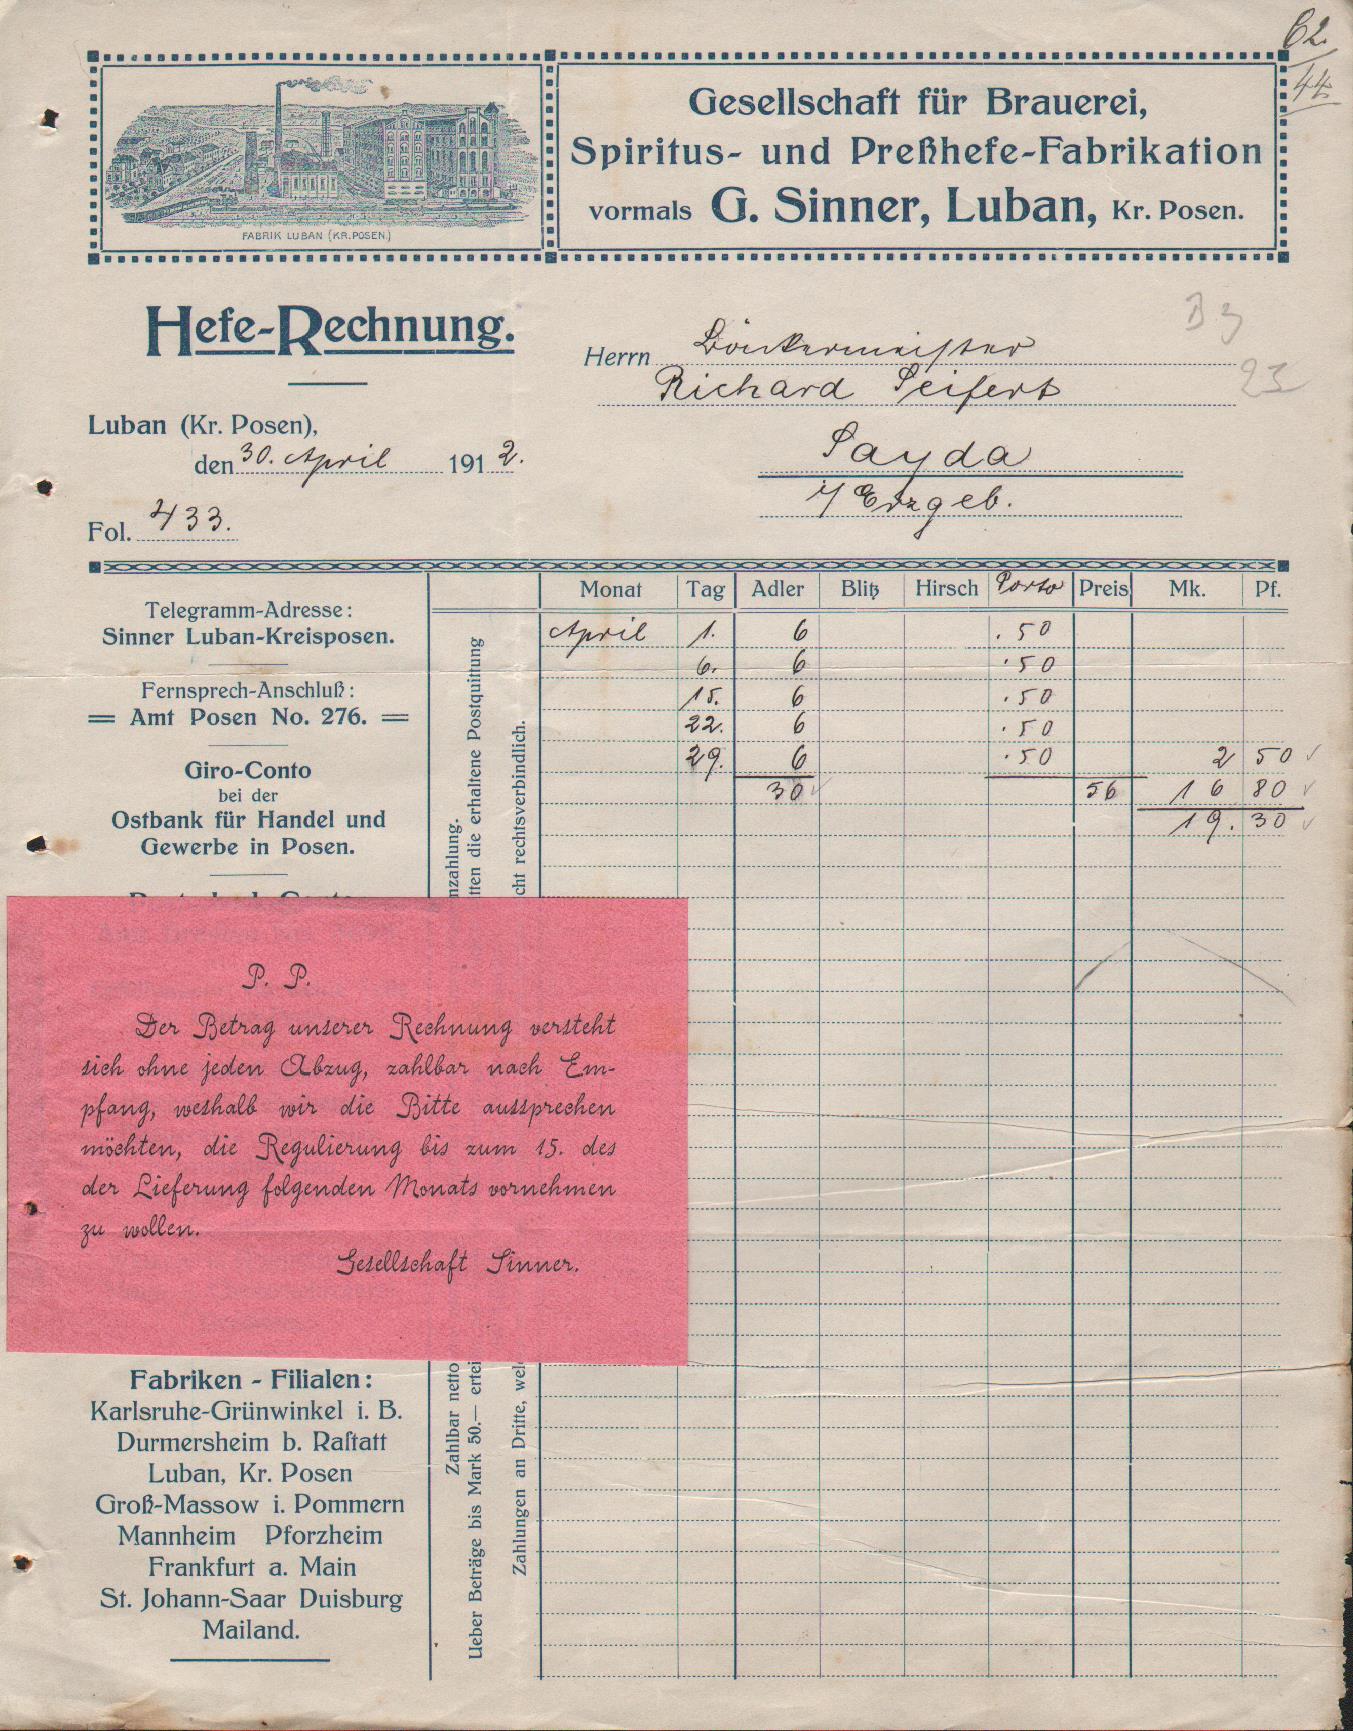 62.
44
FABRIK LUBAN (KR. POSEN.)
Gesellschaft für Brauerei,
Spiritus- und Preßhefe-Fabrikation
vormals G. Sinner, Luban, Kr. Posen.
Hefe-Rechnung.
Luban (Kr. Posen),
den 30. April 1912.
Fol. 433.
Herrn Bäckermeister
Richard Seifert
Sayda
i/Erzgeb.
B 3
23
Telegramm-Adresse:
Sinner Luban-Kreisposen.
Fernsprech-Anschluß:
Amt Posen No. 276.
Giro-Conto
bei der
Ostbank für Handel und
Gewerbe in Posen.
P. P.
Der Betrag unserer Rechnung versteht
sich ohne jeden Abzug, zahlbar nach Em-
pfang, weshalb wir die Bitte aussprechen
möchten, die Regulierung bis zum 15. des
der Lieferung folgenden Monats vornehmen
zu wollen.
Gesellschaft Sinner.
Fabriken - Filialen:
Karlsruhe-Grünwinkel i. B.
Durmersheim b. Rastatt
Luban, Kr. Posen
Groß-Massow i. Pommern
Mannheim Pforzheim
Frankfurt a. Main
St. Johann-Saar Duisburg
Mailand.
Zahlbar netto nzahlung.
Ueber Beträge bis Mark 50.— ertei tten die erhaltene Postquittung
Zahlungen an Dritte, wel cht rechtsverbindlich.
Monat Tag Adler Blitz Hirsch Porto Preis Mk. Pf.
April 1. 6 .50
6. 6 .50
15. 6 .50
22. 6 .50
29. 6 .50 2 50
30 56 16 80
19. 30